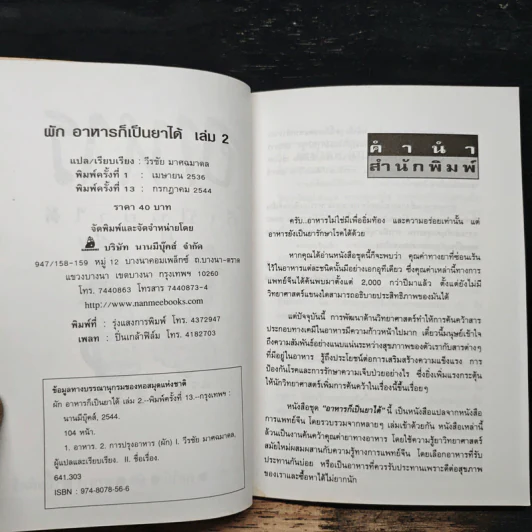 ผัก อาหารก็เป็นยาได้ เล่ม 2
แปล/เรียบเรียง : วีรชัย มาศฉมาดล
พิมพ์ครั้งที่ 1 : เมษายน 2536
พิมพ์ครั้งที่ 13 : กรกฎาคม 2544
ราคา 40 บาท
จัดพิมพ์และจัดจำหน่ายโดย
บริษัท นานมีบุ๊คส์ จำกัด
947/158-159 หมู่ 12 บางนาคอมเพล็กซ์ ถ.บางนา-ตราด
แขวงบางนา เขตบางนา กรุงเทพฯ 10260
โทร. 7440863 โทรสาร 7440873-4
http://www.nanmeebooks.com
พิมพ์ที่ : รุ่งแสงการพิมพ์ โทร. 4372947
เพลท : ปิ่นเกล้าฟิล์ม โทร. 4182703
ข้อมูลทางบรรณานุกรมของหอสมุดแห่งชาติ
ผัก อาหารก็เป็นยาได้ เล่ม 2.--พิมพ์ครั้งที่ 13.--กรุงเทพฯ :
นานมีบุ๊คส์, 2544.
104 หน้า.
1. อาหาร. 2. การปรุงอาหาร (ผัก) I. วีรชัย มาศฉมาดล,
ผู้แปลและเรียบเรียง. II. ชื่อเรื่อง.
641.303
ISBN : 974-8078-56-6
คำนำ
สำนักพิมพ์
ครับ..อาหารไม่ใช่มีเพื่ออิ่มท้อง และความอร่อยเท่านั้น แต่
อาหารยังเป็นยารักษาโรคได้ด้วย
หากคุณได้อ่านหนังสือชุดนี้ก็จะพบว่า คุณค่าทางยาที่ซ่อนเร้น
ไว้ในอาหารแต่ละชนิดนั้นมีอย่างเอกอุทีเดียว ซึ่งคุณค่าเหล่านี้ทางการ
แพทย์จีนได้ค้นพบมาตั้งแต่ 2,000 กว่าปีมาแล้ว ตั้งแต่ยังไม่มี
วิทยาศาสตร์แขนงใดสามารถอธิบายประสิทธิภาพของมันได้
แต่ปัจจุบันนี้ การพัฒนาด้านวิทยาศาสตร์ทำให้การค้นคว้าสาร
ประกอบทางเคมีในอาหารมีความก้าวหน้าไปมาก เดี๋ยวนี้มนุษย์เข้าใจ
ถึงความสัมพันธ์อย่างแนบแน่นระหว่างสุขภาพของตัวเรากับสารต่างๆ
ที่มีอยู่ในอาหาร รู้ถึงประโยชน์ต่อการเสริมสร้างความแข็งแรง การ
ป้องกันโรคและการรักษาความเจ็บป่วยอย่างไร ซึ่งยิ่งเพิ่มแรงกระตุ้น
ให้นักวิทยาศาสตร์เพิ่มการค้นคว้าในเรื่องนี้ขึ้นเรื่อยๆ
หนังสือชุด "อาหารก็เป็นยาได้" นี้ เป็นหนังสือแปลจากหนังสือ
การแพทย์จีน โดยรวบรวมจากหลายๆ เล่มเข้าด้วยกัน หนังสือเหล่านี้
ล้วนเป็นงานค้นคว้าคุณค่าทางอาหาร โดยใช้ความรู้ยาวิทยาศาสตร์
สมัยใหม่ผสมผสานกับความรู้ทางการแพทย์จีน โดยเลือกอาหารที่รับ
ประทานกันบ่อย หรือเป็นอาหารที่ควรรับประทานเพราะดีต่อสุขภาพ
ของเราและซื้อหาได้ไม่ยากนัก